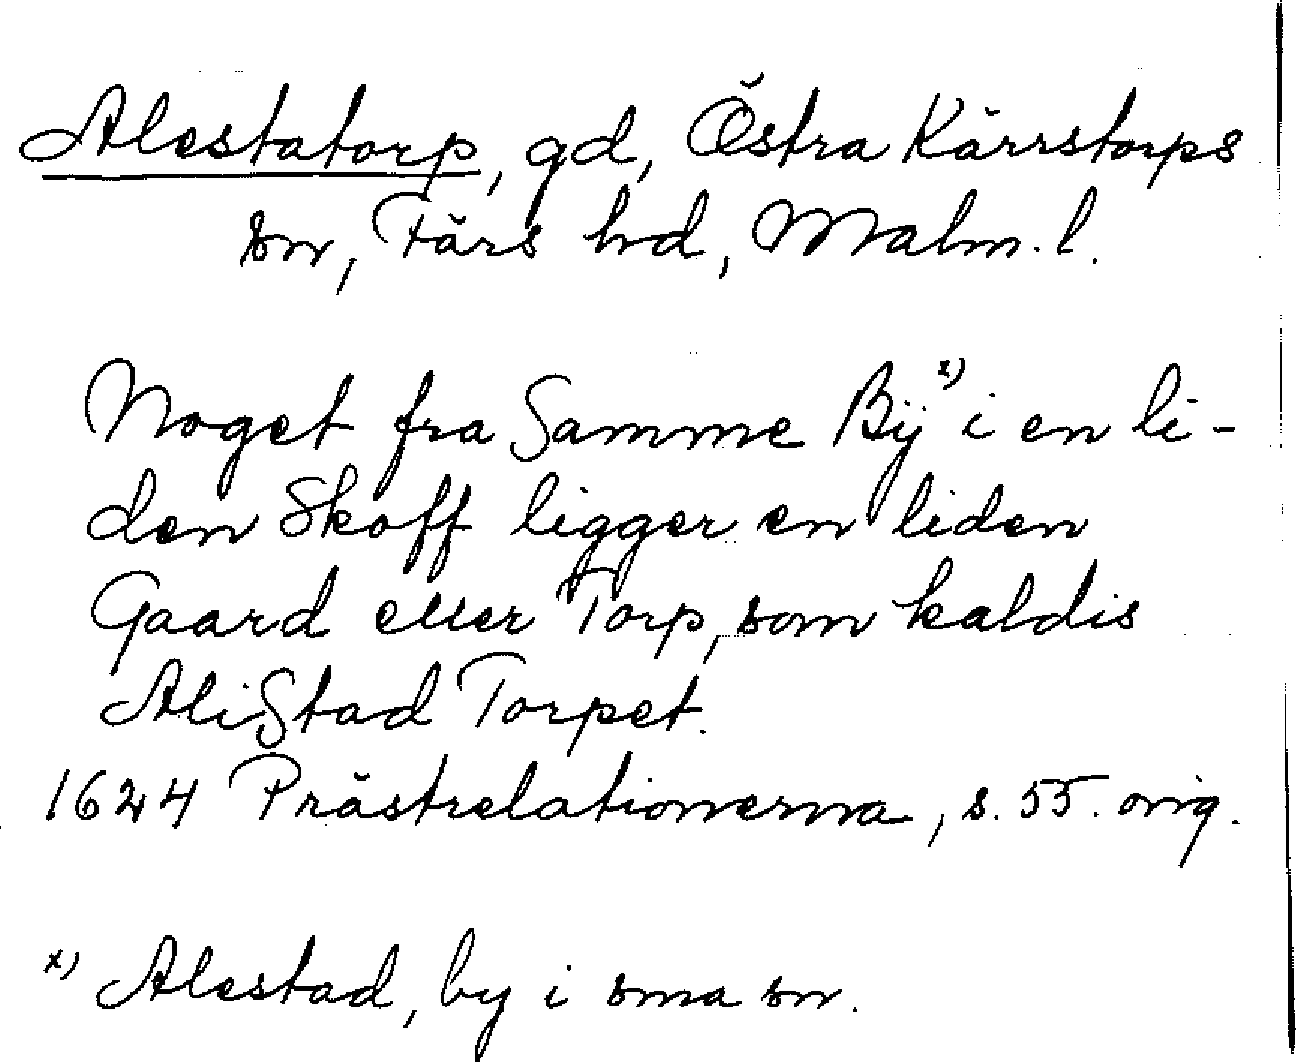 Alestatorp, gd, Östra Kärrstorps
sn, Färs hd, Malm. l.
Noget fra Samme Bÿ x) i en li-
den Skoff ligger en liden
Gaard eller Torp, som kaldis
AliStad Torpet.
1624 Prästrelationerna, s. 55. orig.
x) Alestad, by i sma sn.